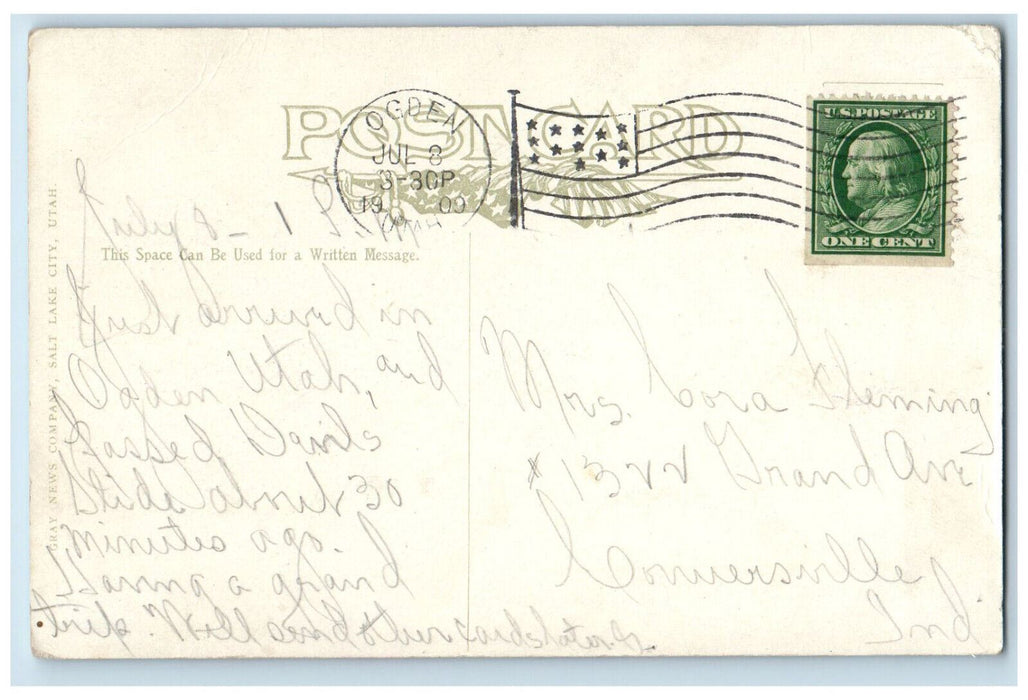 POST CARD
OGDEN
JUL 8
3-30P
19 09
U.S. POSTAGE
ONE CENT
July 8 - 1 P.M.
This Space Can Be Used for a Written Message.
GRAY NEWS COMPANY, SALT LAKE CITY, UTAH.
Just arrived in
Ogden Utah, and
passed Devils
Slide about 30
minutes ago.
Having a grand
trip. Will send
Mrs. Cora Fleming
1322 Grand Ave
Connersville
Ind